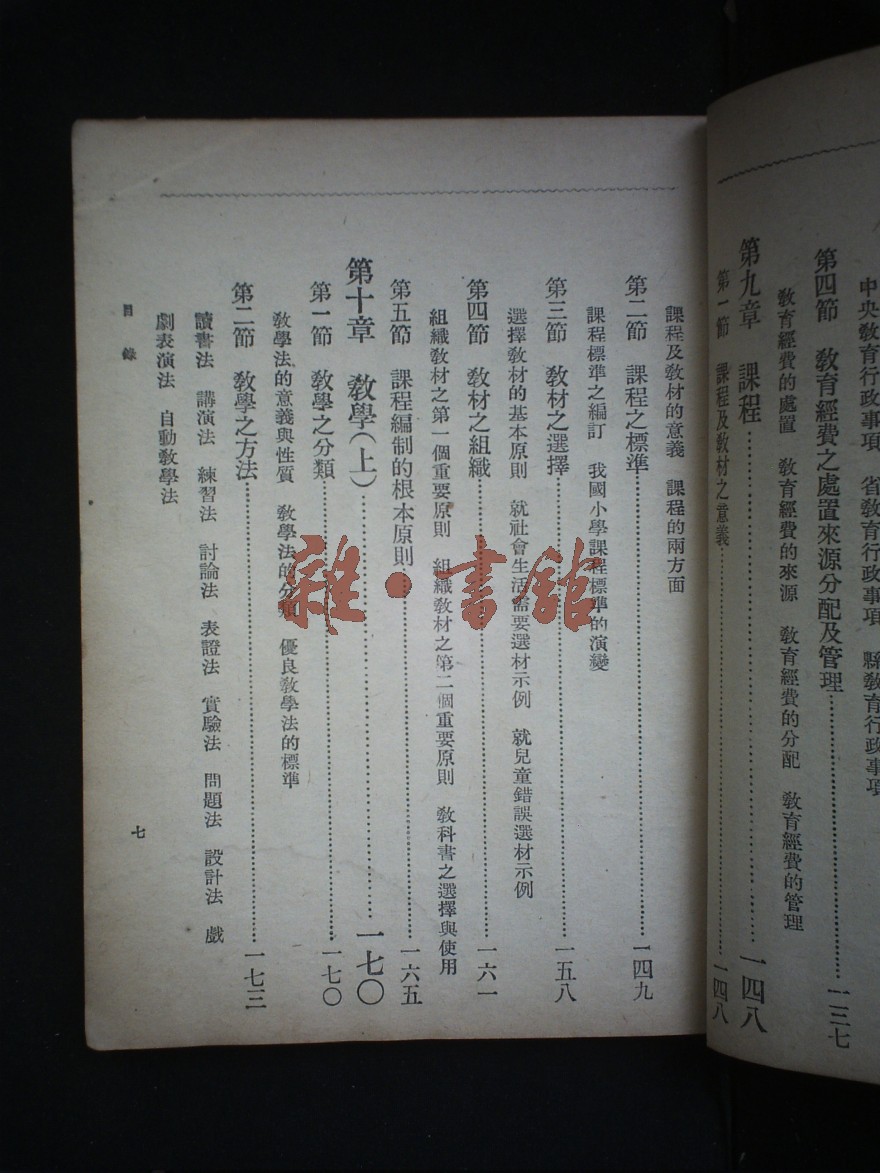 中央敎育行政事項　省敎育行政事項　縣敎育行政事項
第四節　敎育經費之處置來源分配及管理……一三七
敎育經費的處置　敎育經費的來源　敎育經費的分配　敎育經費的管理
第九章　課程……一四八
第一節　課程及敎材之意義……一四八
課程及敎材的意義　課程的兩方面
第二節　課程之標準……一四九
課程標準之編訂　我國小學課程標準的演變
第三節　敎材之選擇……一五八
選擇敎材的基本原則　就社會生活需要選材示例　就兒童錯誤選材示例
第四節　敎材之組織……一六一
組織敎材之第一個重要原則　組織敎材之第二個重要原則　敎科書之選擇與使用
第五節　課程編制的根本原則……一六五
第十章　敎學（上）……一七〇
第一節　敎學之分類……一七〇
敎學法的意義與性質　敎學法的分類　優良敎學法的標準
第二節　敎學之方法……一七三
讀書法　講演法　練習法　討論法　表證法　實驗法　問題法　設計法　戲
劇表演法　自動敎學法
目錄
七
雜·書館